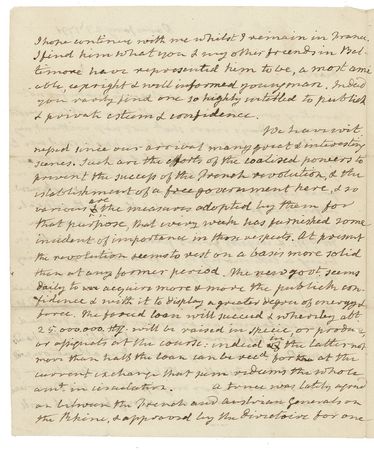 I hope continue with me whilst I remain in France.
I find him what you & my other friends in Bal-
timore have represented him to be, a most ami
able, upright & well informed young man. Indeed
you rarely find one so highly intitled to publick
& private esteem & confidence.
We have wit
nessed since our arrival many great & interesting
scenes. Such are the efforts of the coalised powers to
prevent the success of the French revolution, & the
establishment of a free government here, & so
various are the measures adopted by them for
that purpose, that every week has furnished some
incident of importance in those respects. At present
the revolution seems to rest on a basis more solid
than at any former period. The new govt. seems
daily to acquire more & more the publick con-
fidence & with it to display a greater degree of energy &
force. The forced loan will succeed & whereby abt.
25.000.000. will be raised in specie, or produce
or assignats at the course: indeed in the latter not
more than half the loan can be recd. for at the
current exchange that sum redeems the whole
amt. in circulation. a truce was lately agreed
on between the French and Austrian Generals on
the Rhine, & approved by the Directoire for one